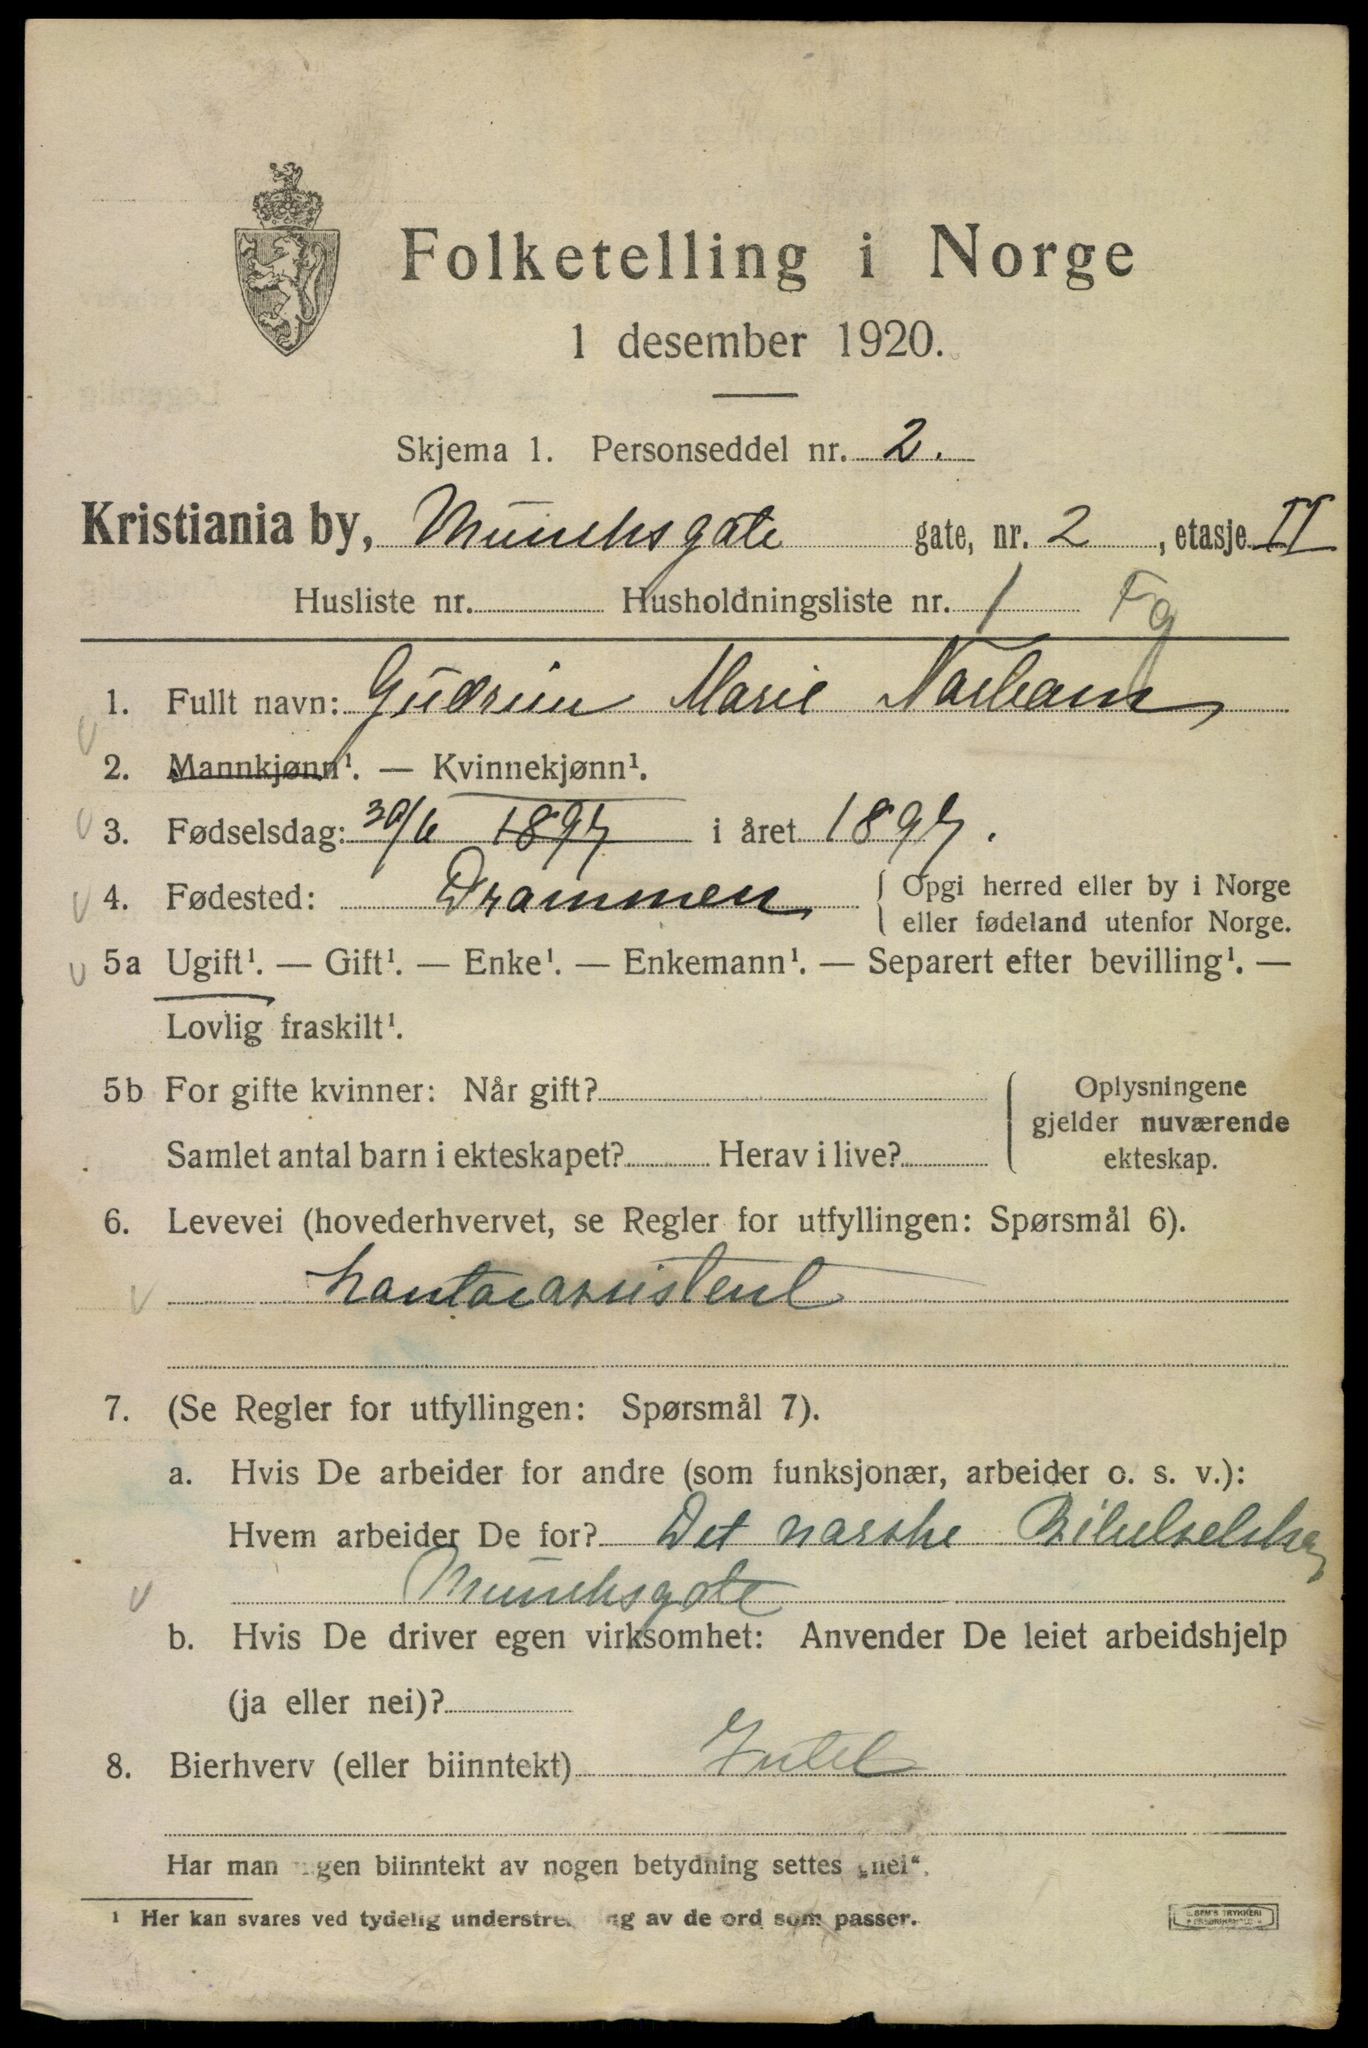 Folketelling i Norge
1 desember 1920.
Skjema 1. Personseddel nr. 2.
Kristiania by, Munchsgate gate, nr. 2, etasje II
Husliste nr. Husholdningsliste nr. 1 Fg
1. Fullt navn: Gudrun Marie
2. Mannkjønn¹. — Kvinnekjønn¹.
3. Fødselsdag: 30/6 1897 i året 1897.
4. Fødested: Drammen { Opgi herred eller by i Norge
eller fødeland utenfor Norge.
5a Ugift¹. — Gift¹. — Enke¹. — Enkemann¹. — Separert efter bevilling¹. —
Lovlig fraskilt¹.
5b For gifte kvinner: Når gift? { Oplysningene
gjelder nuværende
Samlet antal barn i ekteskapet? Herav i live? ekteskap.
6. Levevei (hovederhvervet, se Regler for utfyllingen: Spørsmål 6).
kontorassistent
7. (Se Regler for utfyllingen: Spørsmål 7).
a. Hvis De arbeider for andre (som funksjonær, arbeider o. s. v.):
Hvem arbeider De for? Det norske Bibelselskap
Munchsgate
b. Hvis De driver egen virksomhet: Anvender De leiet arbeidshjelp
(ja eller nei)?
8. Bierhverv (eller biinntekt) Intet
Har man ingen biinntekt av nogen betydning settes „nei“.
¹ Her kan svares ved tydelig understrekning av de ord som passer.